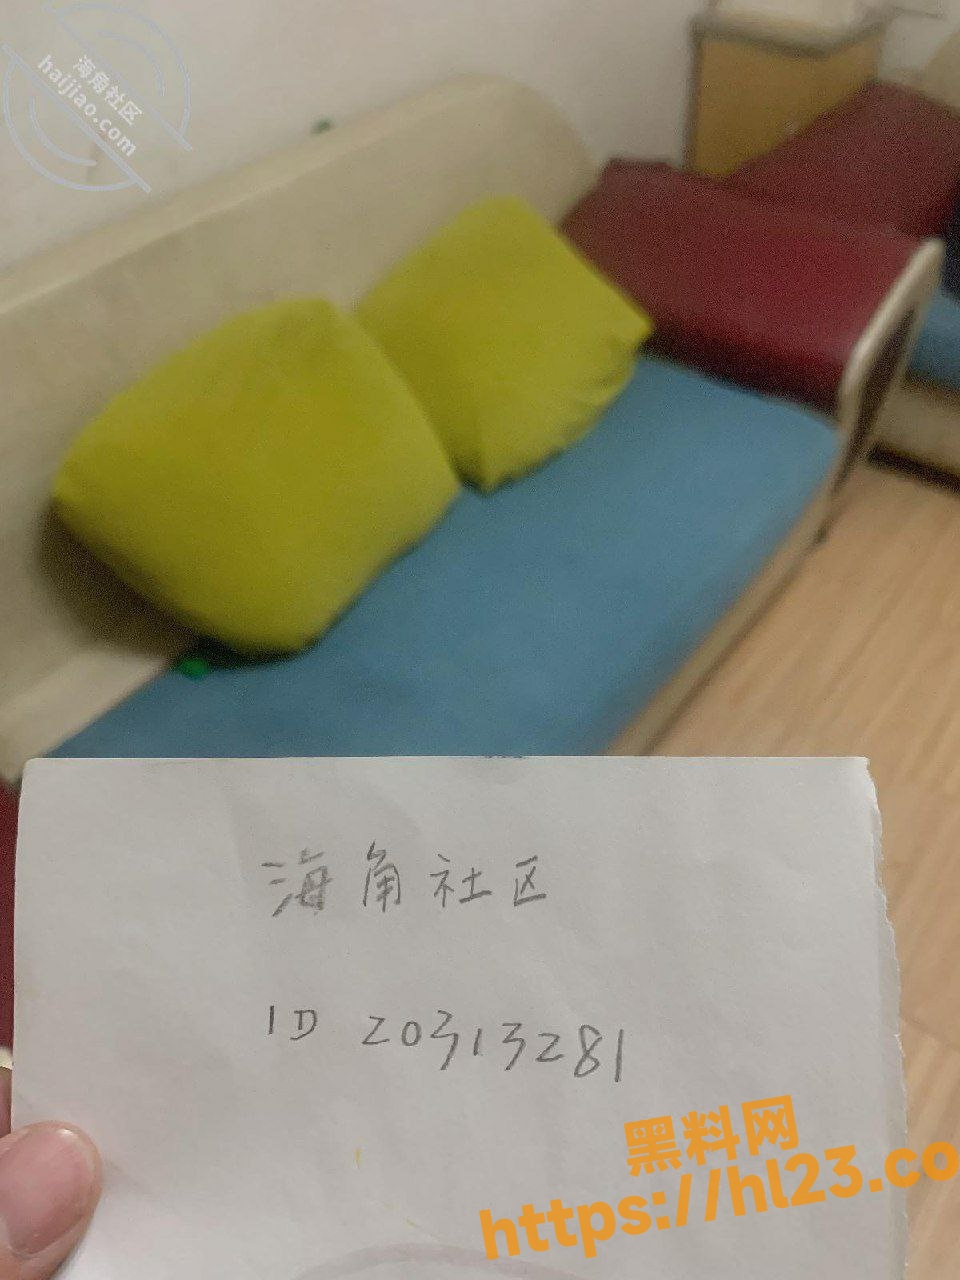 海角社区
haijiao.com
海角社区
ID 20313281
黑料网
https://hl23.co